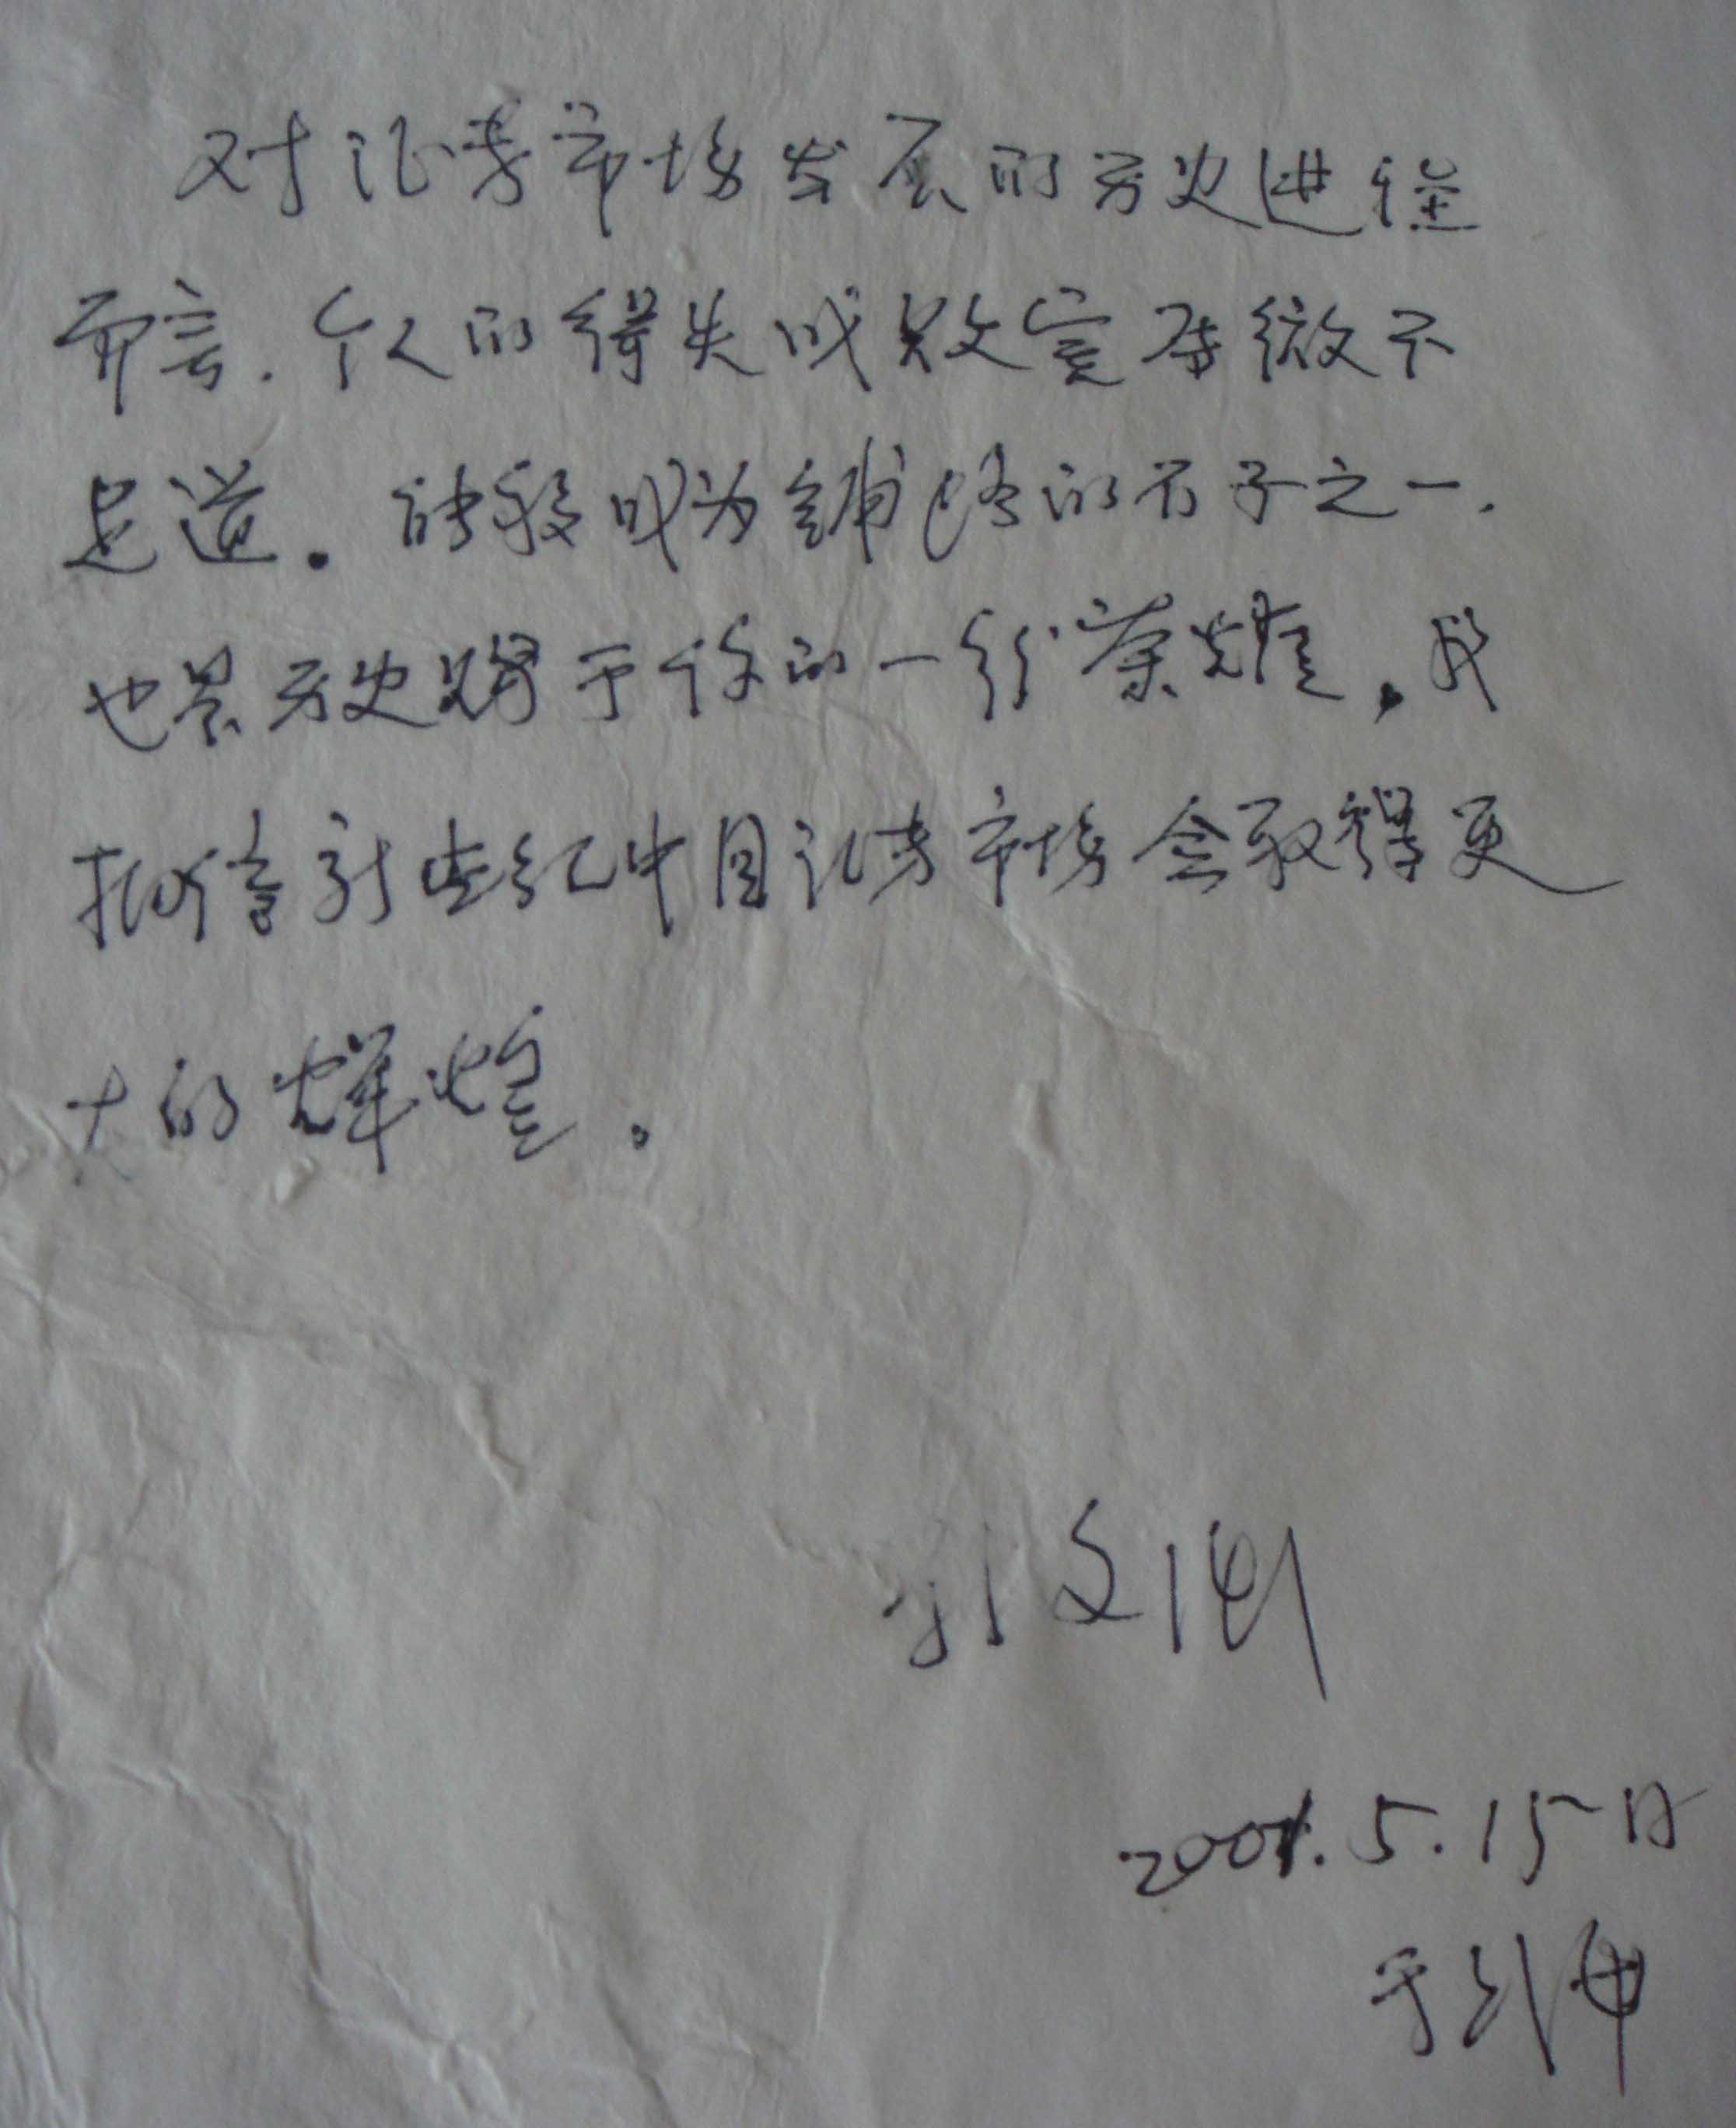 对证券市场发展的历史进程
而言，个人的得失成败实在微不
足道。能够成为铺路的石子之一，
也是历史赐于你的一份荣耀。我
相信新世纪中国证券市场会取得更
大的辉煌。
2001.5.15日
于